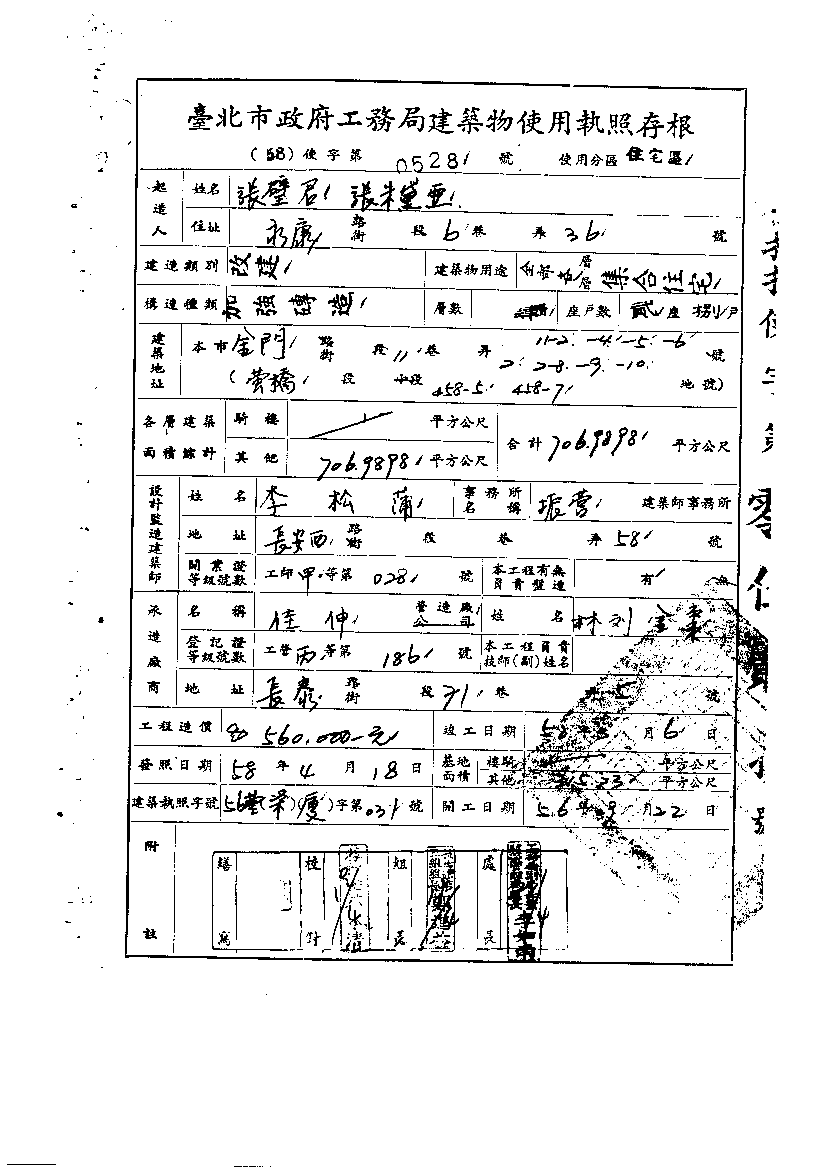 臺北市政府工務局建築物使用執照存根
(58)使字第 0528 號 使用分區 住宅區
起造人 姓名 張璧君 張朱黛亞
住址 永康 路街 段 6 巷 弄 36 號
建造類別 改建 建築物用途 全部 層 層 集合住宅
構造種類 加強磚造 層數 座戶數 貳 座 捌 戶
建築地址 本市 金門 路街 段 11 巷 弄 11-2. -4. -5. -6 號
2. 2-8. -9. -10.
(螢橋 段 小段 458-5. 458-7 地號)
各層建築面積總計 騎樓 平方公尺 合計 706.9898 平方公尺
其他 706.9898 平方公尺
設計監造建築師 姓名 李松蒲 事務所名稱 振雲 建築師事務所
地址 長安西 路街 段 巷 弄 58 號
開業證等級號數 工師 甲 等第 028 號 本工程有無負責監造 有 無
承造廠商 名稱 佳伸 營造廠公司 姓名 林刘金
登記證等級號數 工營 丙 等第 186 號 本工程負責技師(副)姓名
地址 長泰 路街 段 31 巷 弄 5 號
工程造價 560,000-元 竣工日期 58 年 月 6 日
發照日期 58 年 4 月 18 日 基地面積 樓騎 平方公尺
其他 平方公尺
建築執照字號 56 字第 031 號 開工日期 56 年 9 月 22 日
附註 繕寫 校對 組長 處長